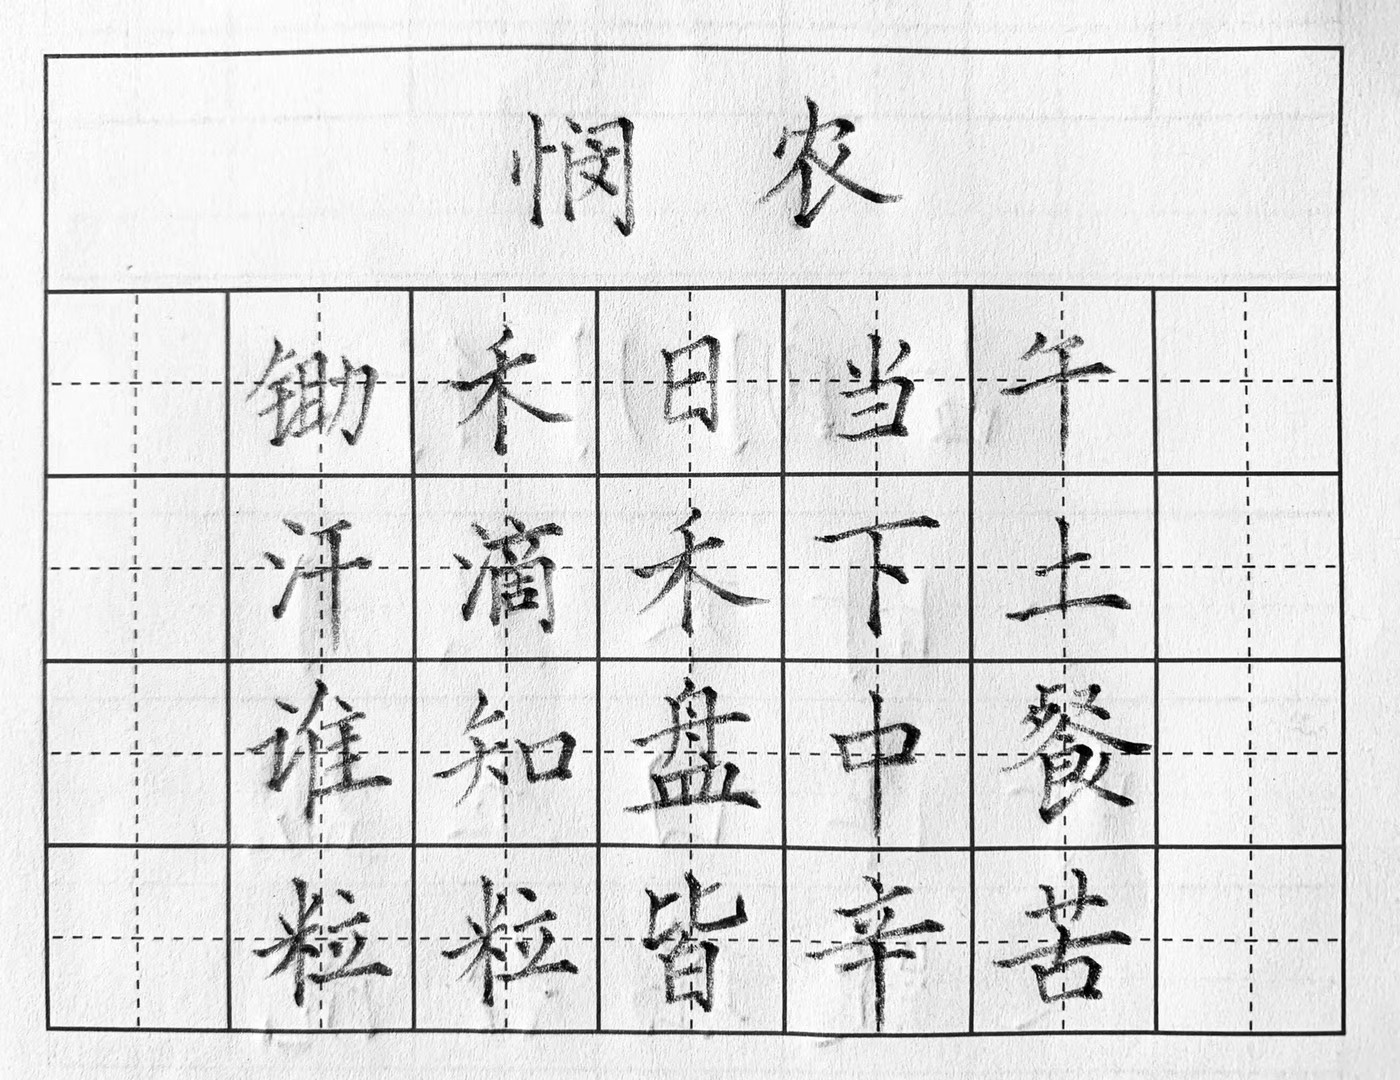 悯农
锄禾日当午
汗滴禾下土
谁知盘中餐
粒粒皆辛苦